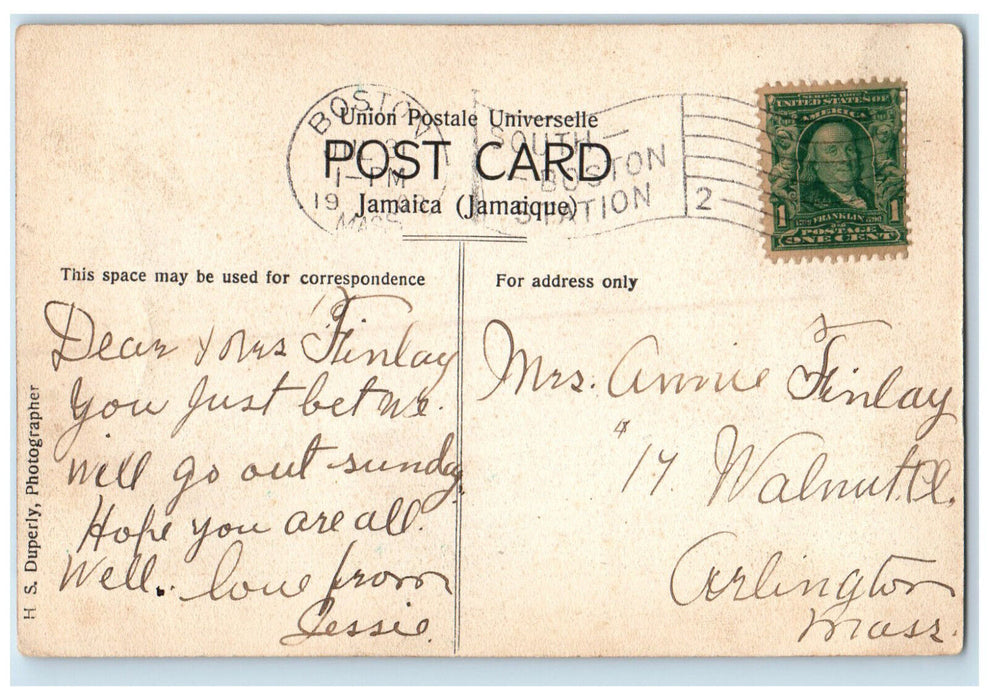 Union Postale Universelle
POST CARD
Jamaica (Jamaique)
BOSTON
1-PM
19
MASS
SOUTH
BOSTON
STATION
2
SERIES 1902
UNITED STATES OF
AMERICA
1 FRANKLIN 1
POSTAGE
ONE CENT
This space may be used for correspondence
For address only
H S. Duperly, Photographer
Dear Mrs Finlay
You just bet we.
will go out sunday.
Hope you are all.
Well.. love from
Jessie.
Mrs. Annie Finlay
17 Walnut
Arlington
Mass.